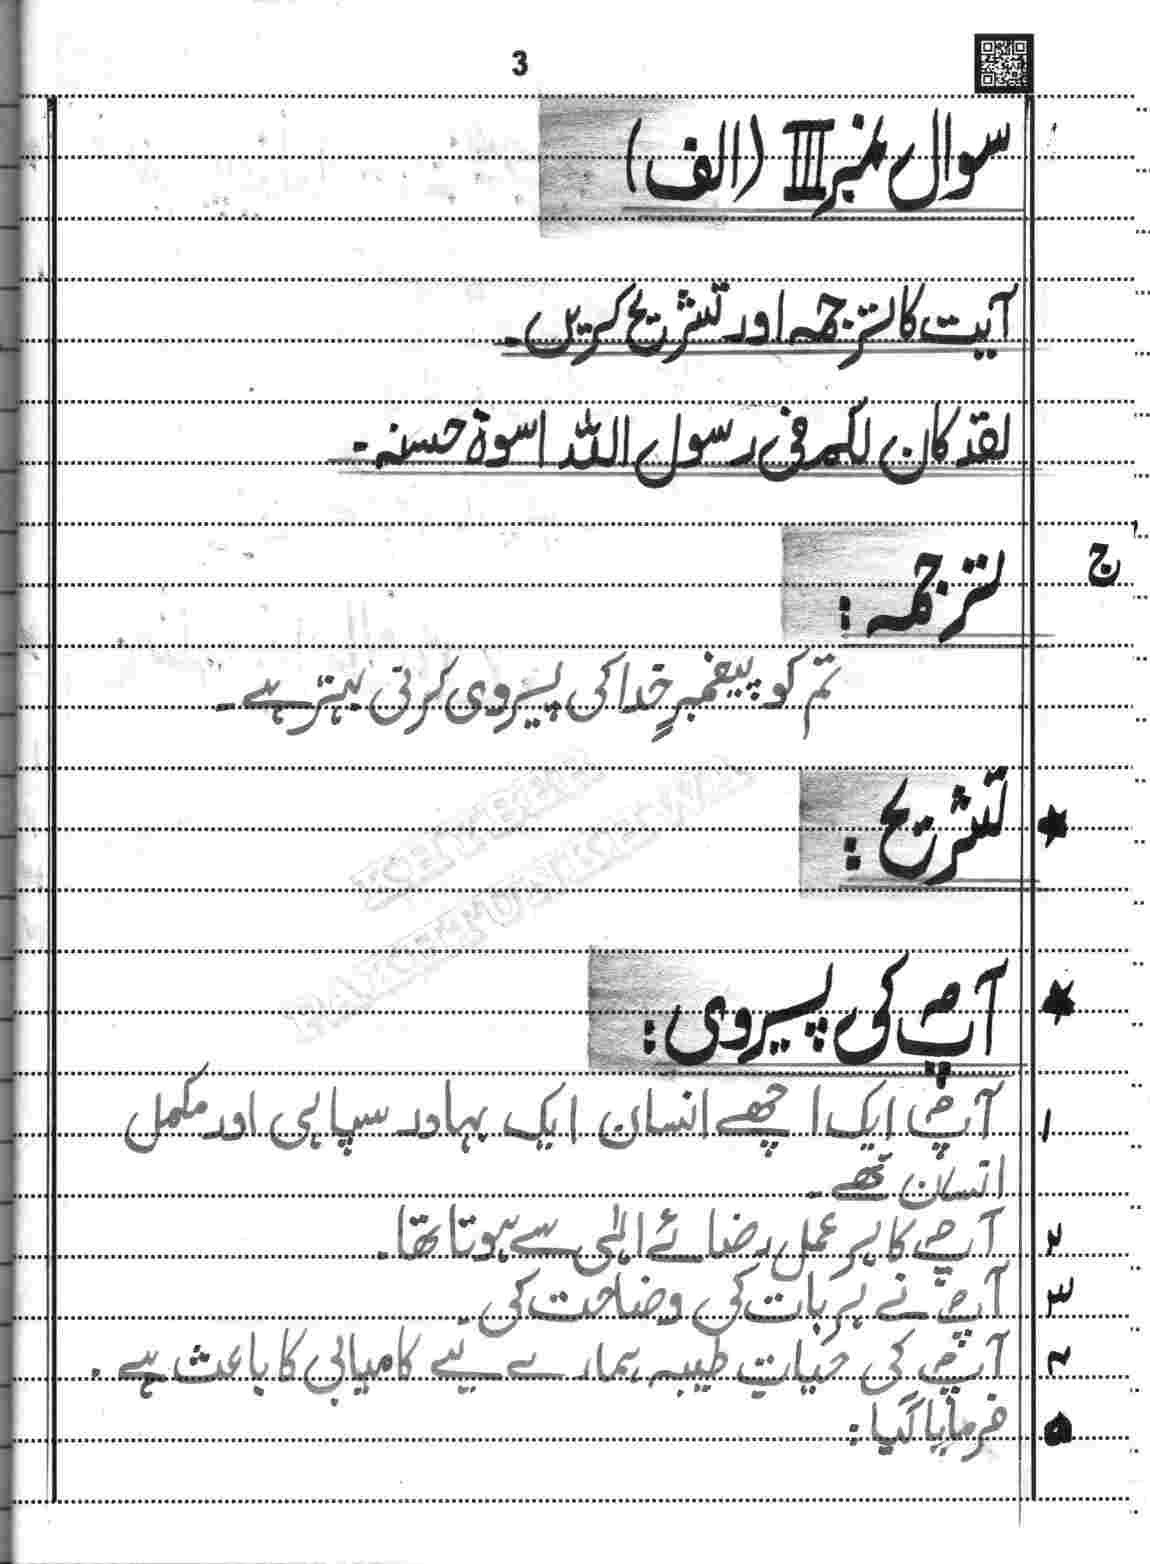 3
سوال نمبر III (الف)
آیت کا ترجمہ اور تشریح کریں۔
لقد کان لکم فی رسول اللہ اسوۃ حسنہ۔
ج ترجمہ:
تم کو پیغمبرِ خدا کی پیروی کرنی بہتر ہے۔
تشریح:
آپؐ کی پیروی:
۱ آپؐ ایک اچھے انسان ایک بہادر سپاہی اور مکمل
انسان تھے۔
۲ آپؐ کا ہر عمل رضائے الہٰی سے ہوتا تھا۔
۳ آپؐ نے ہر بات کی وضاحت کی
۴ آپؐ کی حیاتِ طیبہ ہمارے لیے کامیابی کا باعث ہے۔
۵ فرمایا گیا:
KHYBER
PAKHTUNKHWA